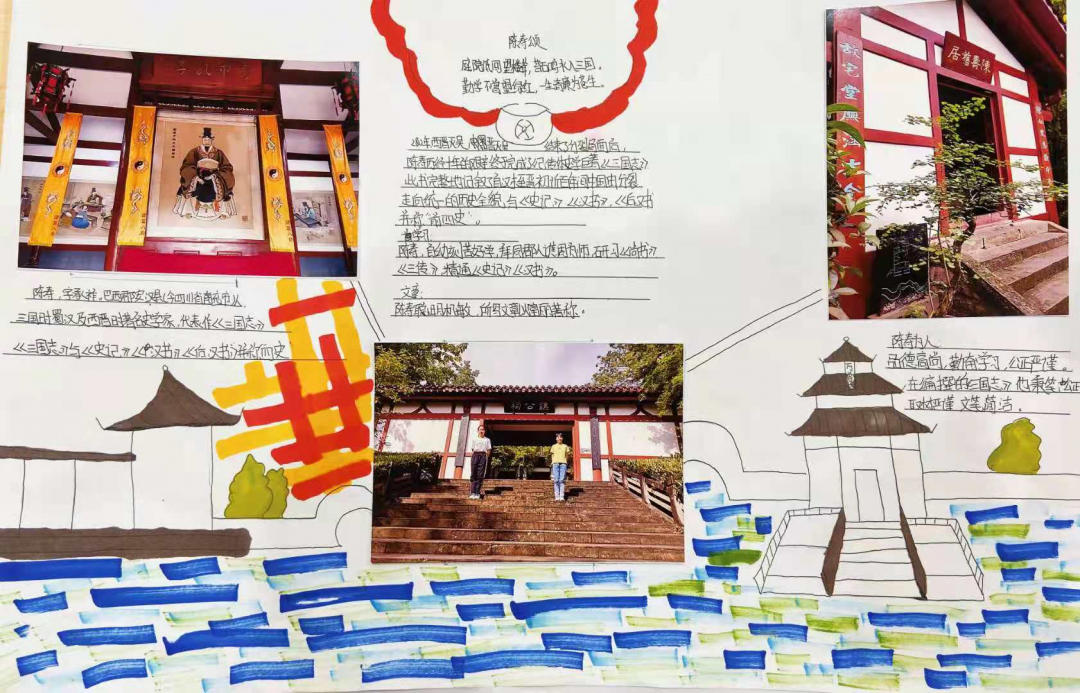 陈寿颂
280年西晋灭吴
结束了分裂局面后,
陈寿历经十年艰辛终完成了纪传体史学巨著《三国志》
此书完整地记叙了自汉末至晋初近百年间中国由分裂
走向统一的历史全貌,与《史记》《汉书》《后汉书》
并称"前四史"。
陈寿,自幼刻苦好学,拜同郡人谯周为师,研习《尚书》
《三传》,精通《史记》《汉书》。
文章:
陈寿聪明机敏,所写文章以富丽著称。
陈寿,字承祚,巴西郡安汉县(今四川省南充市)人
三国时蜀汉及西晋时著名史学家,代表作《三国志》
《三国志》与《史记》《汉书》《后汉书》并称前四史
陳壽舊居
故宅堂興
陳公祠
陈寿为人
品德高尚,勤奋学习,公正严谨。
在编撰的《三国志》他秉笔公正
取材严谨 文笔简洁。